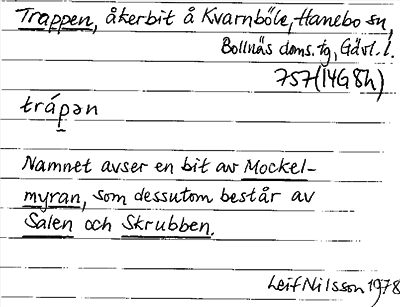 Trappen, åkerbit å Kvarnböle, Hanebo sn,
Bollnäs doms.tg, Gävl. l.
757(14G8h)
trápən
Namnet avser en bit av Mockel-
myran, som dessutom består av
Salen och Skrubben.
Leif Nilsson 1978